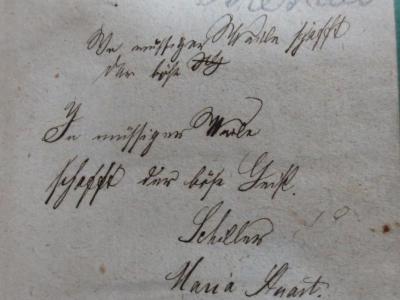 In müssiger Weile schafft
der böse
In müssiger Weile
schafft der böse Geist.
Schiller
Maria Stuart.